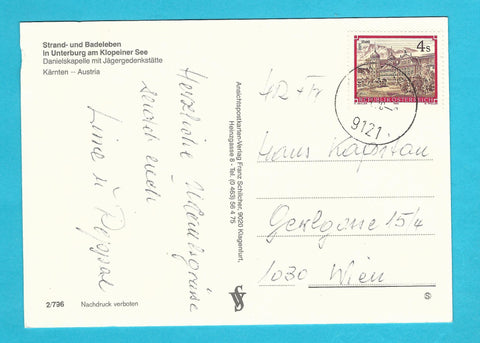 Strand- und Badeleben
in Unterburg am Klopeiner See
Danielskapelle mit Jägergedenkstätte
Kärnten – Austria
Herzliche Urlaubsgrüße
sendet euch
Ansichtspostkarten-Verlag Franz Schilcher, 9020 Klagenfurt,
Heinzgasse 8 - Tel. (0 463) 56 4 75
4 S
REPUBLIK ÖSTERREICH
9121
Hans
15/4
1030 Wien
2/796 Nachdruck verboten